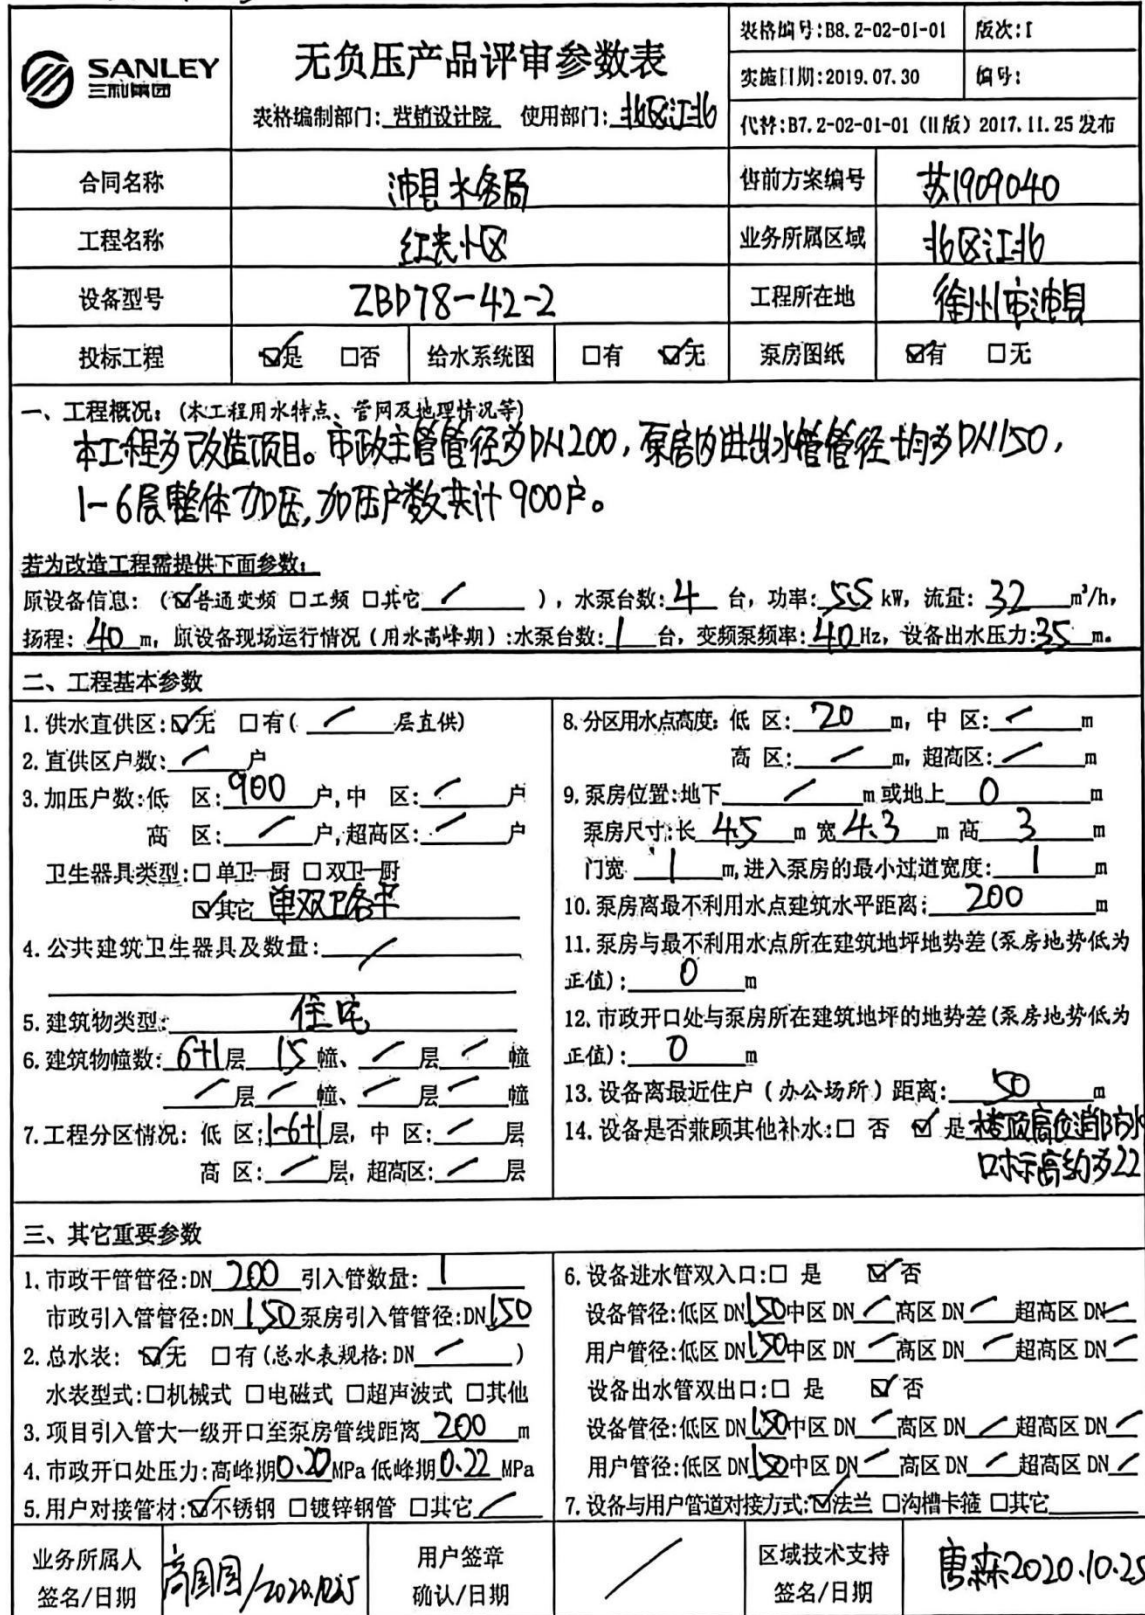 SANLEY
三利集团
无负压产品评审参数表
表格编制部门: 营销设计院 使用部门: 北区江北
表格编号:B8.2-02-01-01 版次:I
实施日期:2019.07.30 编号:
代替:B7.2-02-01-01 (II版) 2017.11.25 发布
合同名称 沛县水务局 售前方案编号 苏1909040
工程名称 红光小区 业务所属区域 北区江北
设备型号 ZBD78-42-2 工程所在地 徐州市沛县
投标工程 ☑是 □否 给水系统图 □有 ☑无 泵房图纸 ☑有 □无
一、工程概况: (本工程用水特点、管网及地理情况等)
本工程为改造项目。市政主管管径为DN200,泵房内进出水管管径均为DN150,
1-6层整体加压,加压户数共计900户。
若为改造工程需提供下面参数:
原设备信息: (☑普通变频 □工频 □其它 / ), 水泵台数: 4 台, 功率: 5.5 kW, 流量: 32 m³/h,
扬程: 40 m, 原设备现场运行情况 (用水高峰期) :水泵台数: 1 台, 变频泵频率: 40 Hz, 设备出水压力: 35 m。
二、工程基本参数
1. 供水直供区: ☑无 □有( / 层直供)
2. 直供区户数: / 户
3. 加压户数:低 区: 900 户,中 区: / 户
高 区: / 户,超高区: / 户
卫生器具类型:□单卫一厨 □双卫一厨
☑其它 单双卫各半
4. 公共建筑卫生器具及数量: /
5. 建筑物类型: 住宅
6. 建筑物幢数: 6+1 层 15 幢、 / 层 / 幢
/ 层 / 幢、 / 层 / 幢
7. 工程分区情况: 低 区: 1-6+1 层, 中 区: / 层
高 区: / 层, 超高区: / 层
8. 分区用水点高度: 低 区: 20 m, 中 区: / m
高 区: / m, 超高区: / m
9. 泵房位置:地下 / m 或地上 0 m
泵房尺寸:长 4.5 m 宽 4.3 m 高 3 m
门宽 1 m,进入泵房的最小过道宽度: 1 m
10. 泵房离最不利用水点建筑水平距离: 200 m
11. 泵房与最不利用水点所在建筑地坪地势差(泵房地势低为
正值): 0 m
12. 市政开口处与泵房所在建筑地坪的地势差(泵房地势低为
正值): 0 m
13. 设备离最近住户 (办公场所) 距离: 50 m
14. 设备是否兼顾其他补水:□ 否 ☑ 是 楼顶高位消防水
口标高约为22
三、其它重要参数
1. 市政干管管径:DN 200 引入管数量: 1
市政引入管管径:DN 150 泵房引入管管径:DN 150
2. 总水表: ☑无 □有(总水表规格:DN / )
水表型式:□机械式 □电磁式 □超声波式 □其他
3. 项目引入管大一级开口至泵房管线距离 200 m
4. 市政开口处压力:高峰期 0.20 MPa 低峰期 0.22 MPa
5. 用户对接管材:☑不锈钢 □镀锌钢管 □其它 /
6. 设备进水管双入口:□ 是 ☑否
设备管径:低区 DN 150 中区 DN / 高区 DN / 超高区 DN /
用户管径:低区 DN 150 中区 DN / 高区 DN / 超高区 DN /
设备出水管双出口:□ 是 ☑否
设备管径:低区 DN 150 中区 DN / 高区 DN / 超高区 DN /
用户管径:低区 DN 150 中区 DN / 高区 DN / 超高区 DN /
7. 设备与用户管道对接方式:☑法兰 □沟槽卡箍 □其它
业务所属人 用户签章 区域技术支持
签名/日期 确认/日期 / 签名/日期
唐森2020.10.25